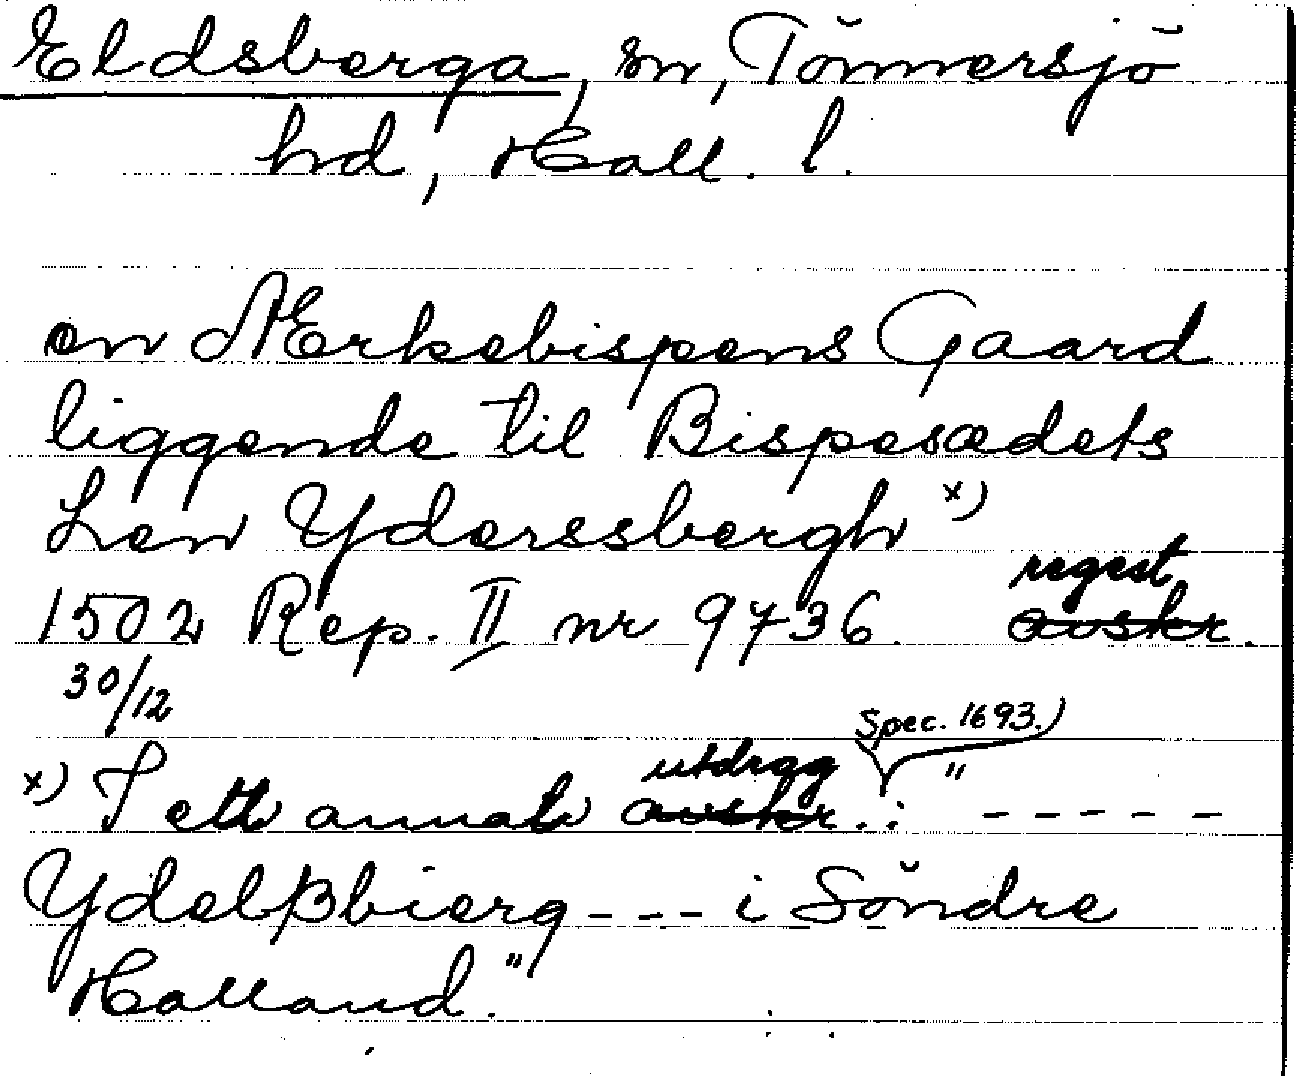 Eldsberga, sn, Tönnersjö
hd, Hall. l.
en Ærkebispens Gaard
liggende til Bispesædets
Len Yderssbergh x)
regest
1502 Rep. II nr 9736. avskr.
30/12
Spec. 1693.)
utdrag
x) I ett annat avskr..: " - - - - -
Ydelßbierg - - - i Söndre
Halland."